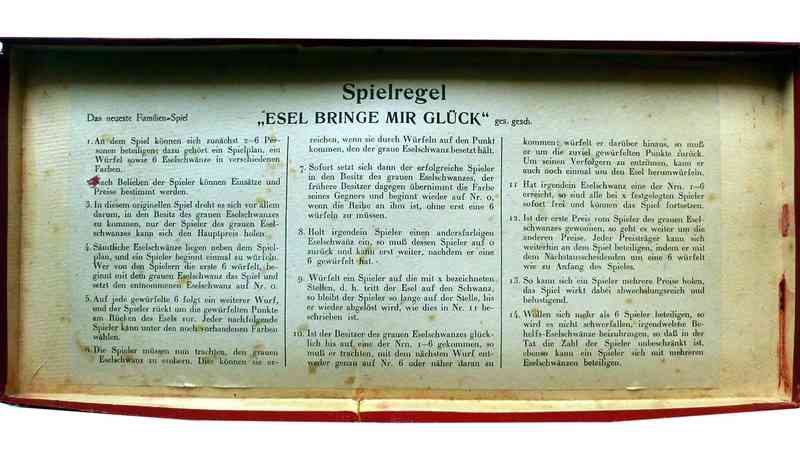 Spielregel
Das neueste Familien-Spiel
„ESEL BRINGE MIR GLÜCK“ ges. gesch.
1. An dem Spiel können sich zunächst 2–6 Per-
sonen beteiligen; dazu gehört ein Spielplan, ein
Würfel sowie 6 Eselschwänze in verschiedenen
Farben.
Nach Belieben der Spieler können Einsätze und
Preise bestimmt werden.
3. In diesem originellen Spiel dreht es sich vor allem
darum, in den Besitz des grauen Eselschwanzes
zu kommen, nur der Spieler des grauen Esel-
schwanzes kann sich den Hauptpreis holen.
4. Sämtliche Eselschwänze liegen neben dem Spiel-
plan, und ein Spieler beginnt einmal zu würfeln.
Wer von den Spielern die erste 6 würfelt, be-
ginnt mit dem grauen Eselschwanz das Spiel und
setzt den entnommenen Eselschwanz auf Nr. 0.
5. Auf jede gewürfelte 6 folgt ein weiterer Wurf,
und der Spieler rückt um die gewürfelten Punkte
am Rücken des Esels vor. Jeder nachfolgende
Spieler kann unter den noch vorhandenen Farben
wählen.
6. Die Spieler müssen nun trachten, den grauen
Eselschwanz zu erobern. Dies können sie er-
reichen, wenn sie durch Würfeln auf den Punkt
kommen, den der graue Eselschwanz besetzt hält.
7. Sofort setzt sich dann der erfolgreiche Spieler
in den Besitz des grauen Eselschwanzes, der
frühere Besitzer dagegen übernimmt die Farbe
seines Gegners und beginnt wieder auf Nr. 0,
wenn die Reihe an ihm ist, ohne erst eine 6
würfeln zu müssen.
8. Holt irgendein Spieler einen andersfarbigen
Eselschwanz ein, so muß dessen Spieler auf 0
zurück und kann erst weiter, nachdem er eine
6 gewürfelt hat.
9. Würfelt ein Spieler auf die mit x bezeichneten
Stellen, d. h. tritt der Esel auf den Schwanz,
so bleibt der Spieler so lange auf der Stelle, bis
er wieder abgelöst wird, wie dies in Nr. 11 be-
schrieben ist.
10. Ist der Besitzer des grauen Eselschwanzes glück-
lich bis auf eine der Nrn. 1–6 gekommen, so
muß er trachten, mit dem nächsten Wurf ent-
weder genau auf Nr. 6 oder näher daran zu
kommen; würfelt er darüber hinaus, so muß
er um die zuviel gewürfelten Punkte zurück.
Um seinen Verfolgern zu entrinnen, kann er
auch noch einmal um den Esel herumwürfeln.
11 Hat irgendein Eselschwanz eine der Nrn. 1–6
erreicht, so sind alle bei x festgelegten Spieler
sofort frei und können das Spiel fortsetzen.
12. Ist der erste Preis vom Spieler des grauen Esel-
schwanzes gewonnen, so geht es weiter um die
anderen Preise. Jeder Preisträger kann sich
weiterhin an dem Spiel beteiligen, indem er mit
dem Nächstausscheidenden um eine 6 würfelt
wie zu Anfang des Spieles.
13. So kann sich ein Spieler mehrere Preise holen,
das Spiel wirkt dabei abwechslungsreich und
belustigend.
14. Wollen sich mehr als 6 Spieler beteiligen, so
wird es nicht schwerfallen, irgendwelche Be-
helfs-Eselschwänze beizubringen, so daß in der
Tat die Zahl der Spieler unbeschränkt ist,
ebenso kann ein Spieler sich mit mehreren
Eselschwänzen beteiligen.